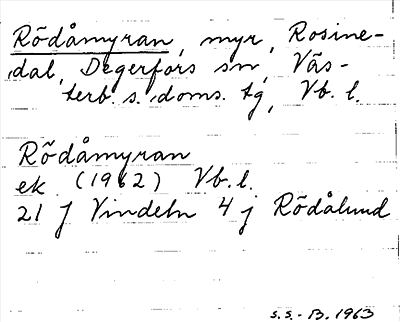 Rödåmyran, myr, Rosine-
dal, Degerfors sn, Väs-
terb. s. doms. tg, Vb. l.
Rödåmyran
ek (1962) Vb. l.
21 J Vindeln 4 j Rödålund
s.s.-B. 1963